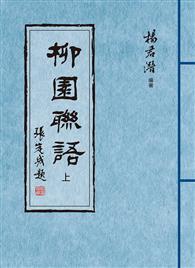 柳園聯語
上
張定成題
楊君潛
編著